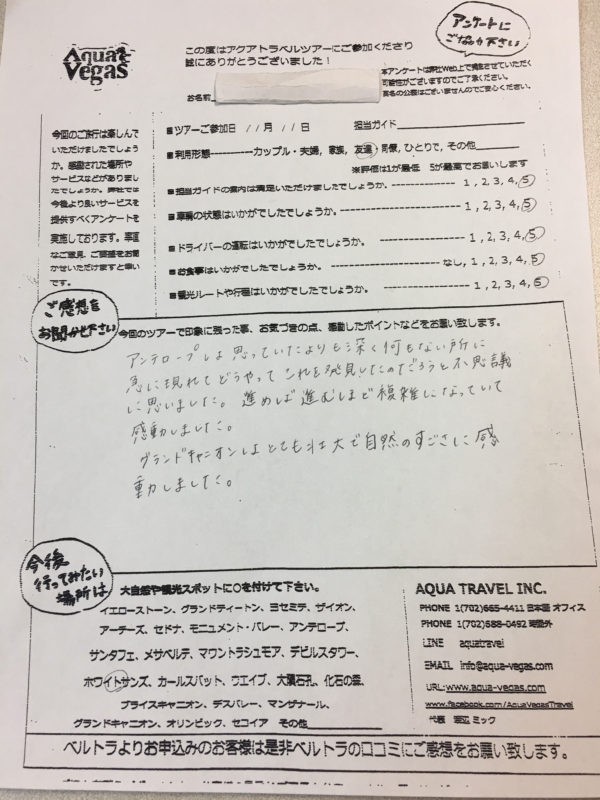 Aqua
Vegas
この度はアクアトラベルツアーにご参加くださり
誠にありがとうございました！
アンケートに
ご協力下さい
本アンケートは弊社Web上で掲載させていただく
可能性がございますのでご了承ください。
実名の公表はございませんのでご安心ください。
お名前
今回のご旅行は楽しんで
いただけましたでしょう
か。感動された場所や
サービスなどがありまし
たでしょうか。弊社では
今後より良いサービスを
提供すべくアンケートを
実施しております。率直
なご意見、ご感想をお聞
かせいただけますと幸い
です。
■ツアーご参加日 11月 11日 担当ガイド
■利用形態----------カップル・夫婦, 家族, 友達・同僚, ひとりで, その他
※評価は1が最低 5が最高でお願いします
■担当ガイドの案内は満足いただけましたでしょうか。---------- 1, 2, 3, 4, 5
■車輛の状態はいかがでしたでしょうか。---------- 1, 2, 3, 4, 5
■ドライバーの運転はいかがでしたでしょうか。---------- 1, 2, 3, 4, 5
■お食事はいかがでしたでしょうか。---------- なし, 1, 2, 3, 4, 5
■観光ルートや行程はいかがでしたでしょうか。---------- 1, 2, 3, 4, 5
ご感想を
お聞かせ下さい
今回のツアーで印象に残った事、お気づきの点、感動したポイントなどをお願い致します。
アンテロープは思っていたよりも深く何もない所に
急に現れてどうやってこれを発見したのだろうと不思議
に思いました。進めば進むほど複雑になっていて
感動しました。
グランドキャニオンはとても壮大で自然のすごさに感
動しました。
今後
行ってみたい
場所は
大自然や観光スポットに○を付けて下さい。
イエローストーン、グランドティートン、ヨセミテ、ザイオン、
アーチーズ、セドナ、モニュメント・バレー、アンテロープ、
サンタフェ、メサベルデ、マウントラシュモア、デビルスタワー、
ホワイトサンズ、カールスバット、ウエイブ、大隕石孔、化石の森、
ブライスキャニオン、デスバレー、マンザナール、
グランドキャニオン、オリンピック、セコイア その他
AQUA TRAVEL INC.
PHONE 1(702)665-4411 日本語 オフィス
PHONE 1(702)688-0492 時間外
LINE aquatravel
EMAIL info@aqua-vegas.com
URL:www.aqua-vegas.com
www.facebook.com/AquaVegasTravel
代表 ミック
ベルトラよりお申込みのお客様は是非ベルトラの口コミにご感想をお願い致します。